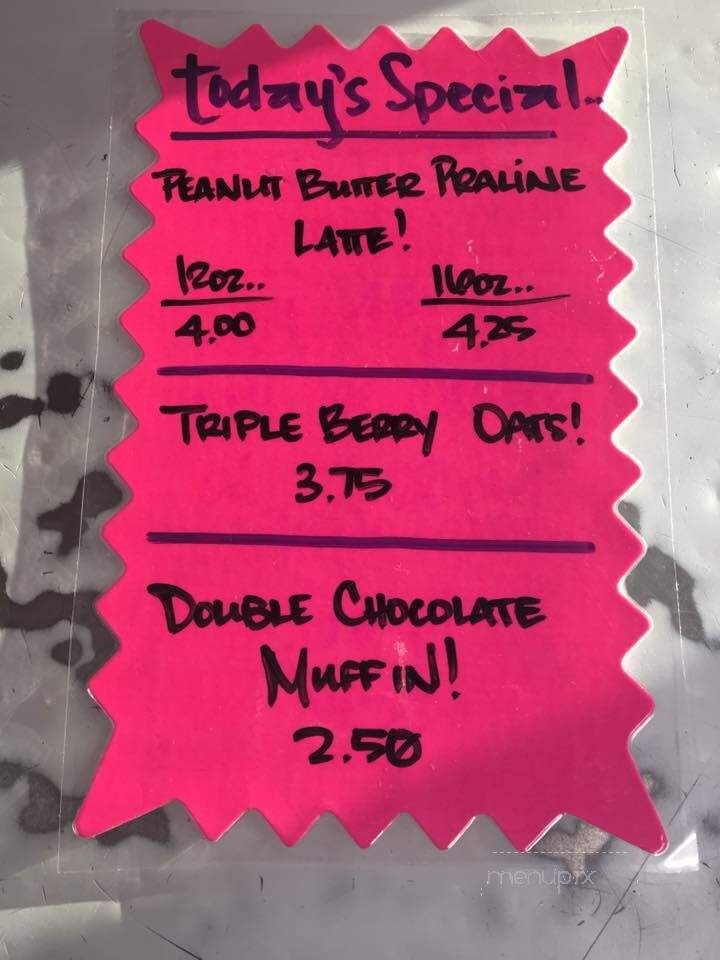 Today's Special..
PEANUT BUTTER PRALINE
LATTE!
12oz.. 16oz..
4.00 4.25
TRIPLE BERRY OATS!
3.75
DOUBLE CHOCOLATE
MUFFIN!
2.50
menupix